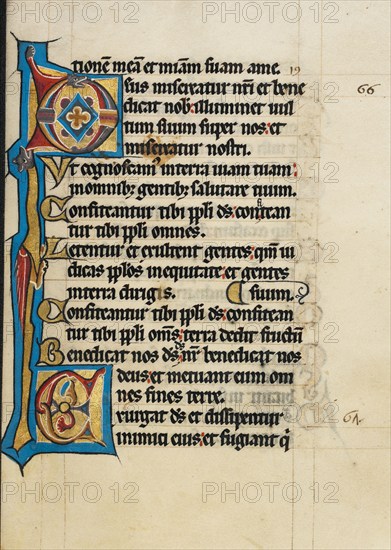 tionē meā et miām suam ame. 19
Dsus misereatur nr̄i et bene
dicat nob: illuminet uul
tum suum super nos: et
misereatur nostri.
66
Ut cognoscam interra uiam tuam:
inomnib; gentib; salutare tuum.
Confiteantur tibi pp̄li ds: confitean
tur tibi pp̄li omnes.
Letentur et exultent gentes: qm̄ iu
dicas pp̄los inequitate: et gentes
interra dirigis. suum.
Confiteantur tibi pp̄li ds: confitean
tur tibi pp̄li oms: terra dedit fructū
Benedicat nos ds nr̄ benedicat nos
deus: et metuant eum om
nes fines terre.
Exurgat ds et dissipentur
inimici eius: et fugiant q̄
PHOTO 12